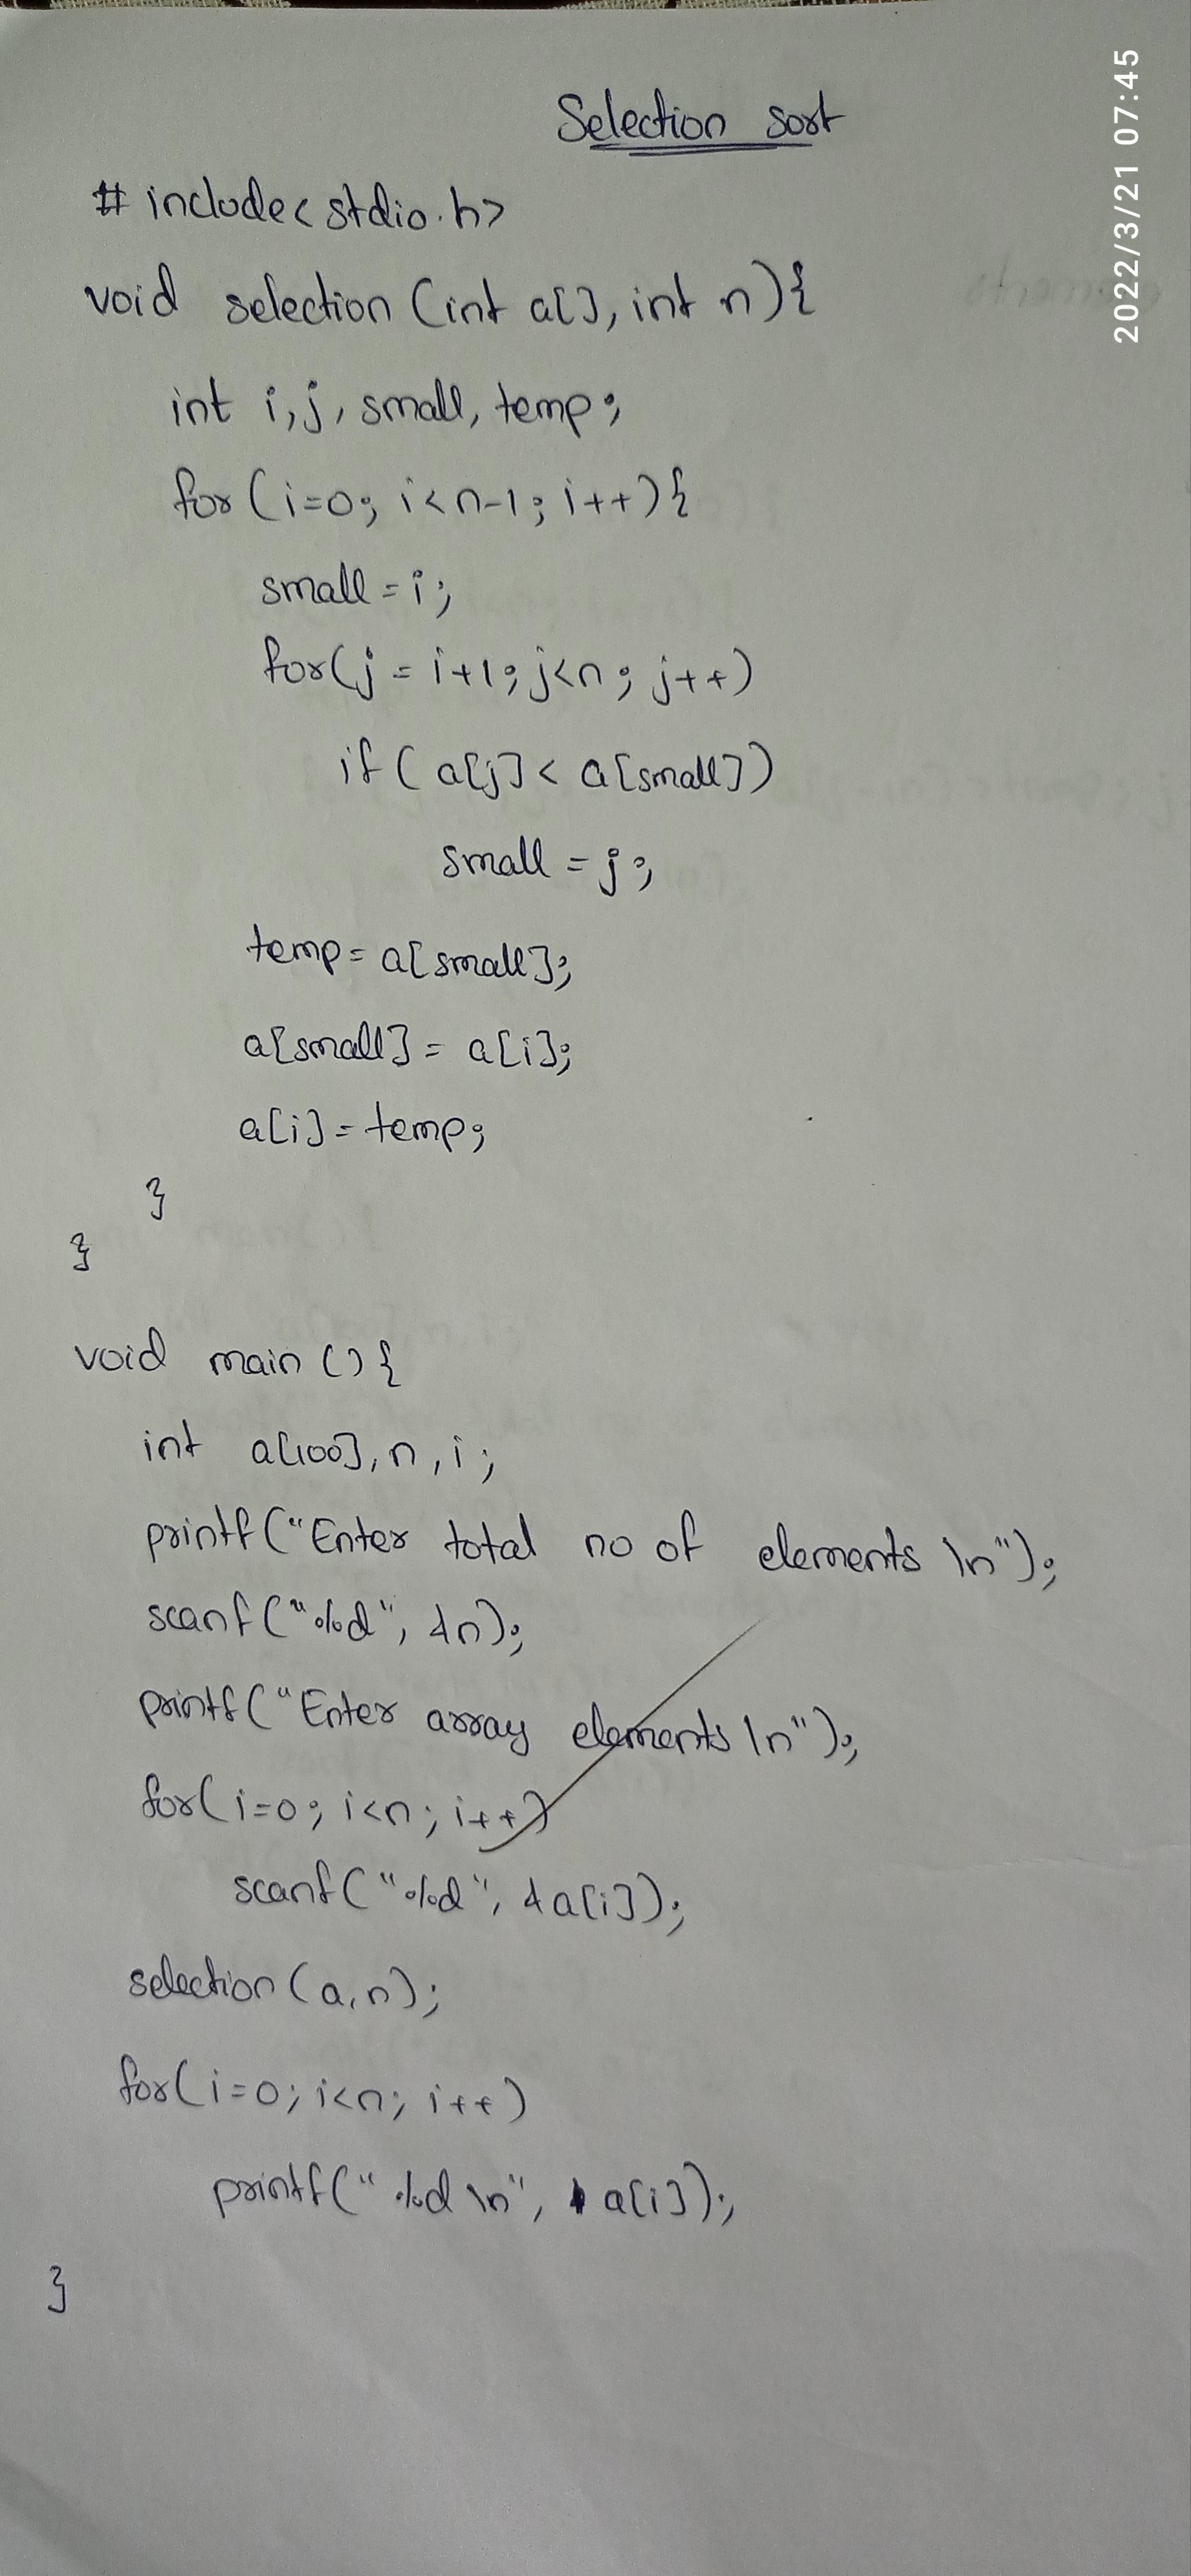 Selection sort
# include<stdio.h>
void selection (int a[], int n){
int i,j, small, temp;
for (i=0; i<n-1; i++){
small = i;
for(j = i+1; j<n; j++)
if (a[j] < a[small])
small = j;
temp = a[small];
a[small] = a[i];
a[i] = temp;
}
}
void main () {
int a[100], n, i;
printf("Enter total no of elements \n");
scanf("%d", &n);
printf("Enter array elements \n");
for(i=0; i<n; i++)
scanf("%d", &a[i]);
selection (a,n);
for(i=0; i<n; i++)
printf("%d \n", a[i]);
}
2022/3/21 07:45